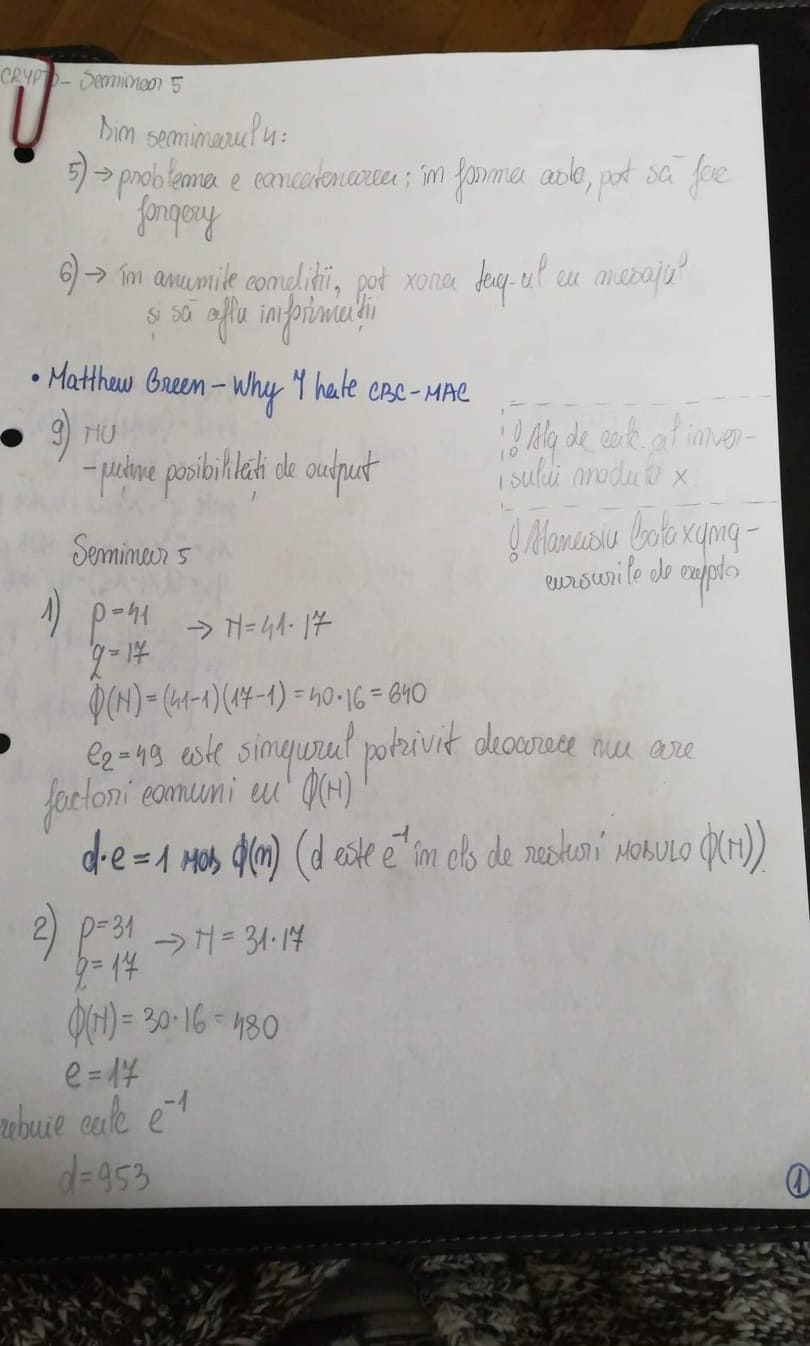 CRYPTO - Seminar 5
Din seminarul 4:
5) → problema e concatenarea; în forma aia, pot să fac
forgery
6) → în anumite condiții, pot xora tag-ul cu mesajul
și să aflu informații
• Matthew Green - Why I hate CBC-MAC
9) NU
- puține posibilități de output
! Alg de calc. al inver-
sului modulo x
! Atanasiu Galaxyng -
cursurile de crypto
Seminar 5
1) p=41
q=17
→ N=41·17
ϕ(N)=(41-1)(17-1)=40·16=640
e₂=49 este singurul potrivit deoarece nu are
factori comuni cu ϕ(N)
d·e=1 MOD ϕ(n) (d este e⁻¹ în cls de resturi MODULO ϕ(N))
2) p=31
q=17
→ N=31·17
ϕ(N)=30·16=480
e=17
rebuie calc e⁻¹
d=953
1